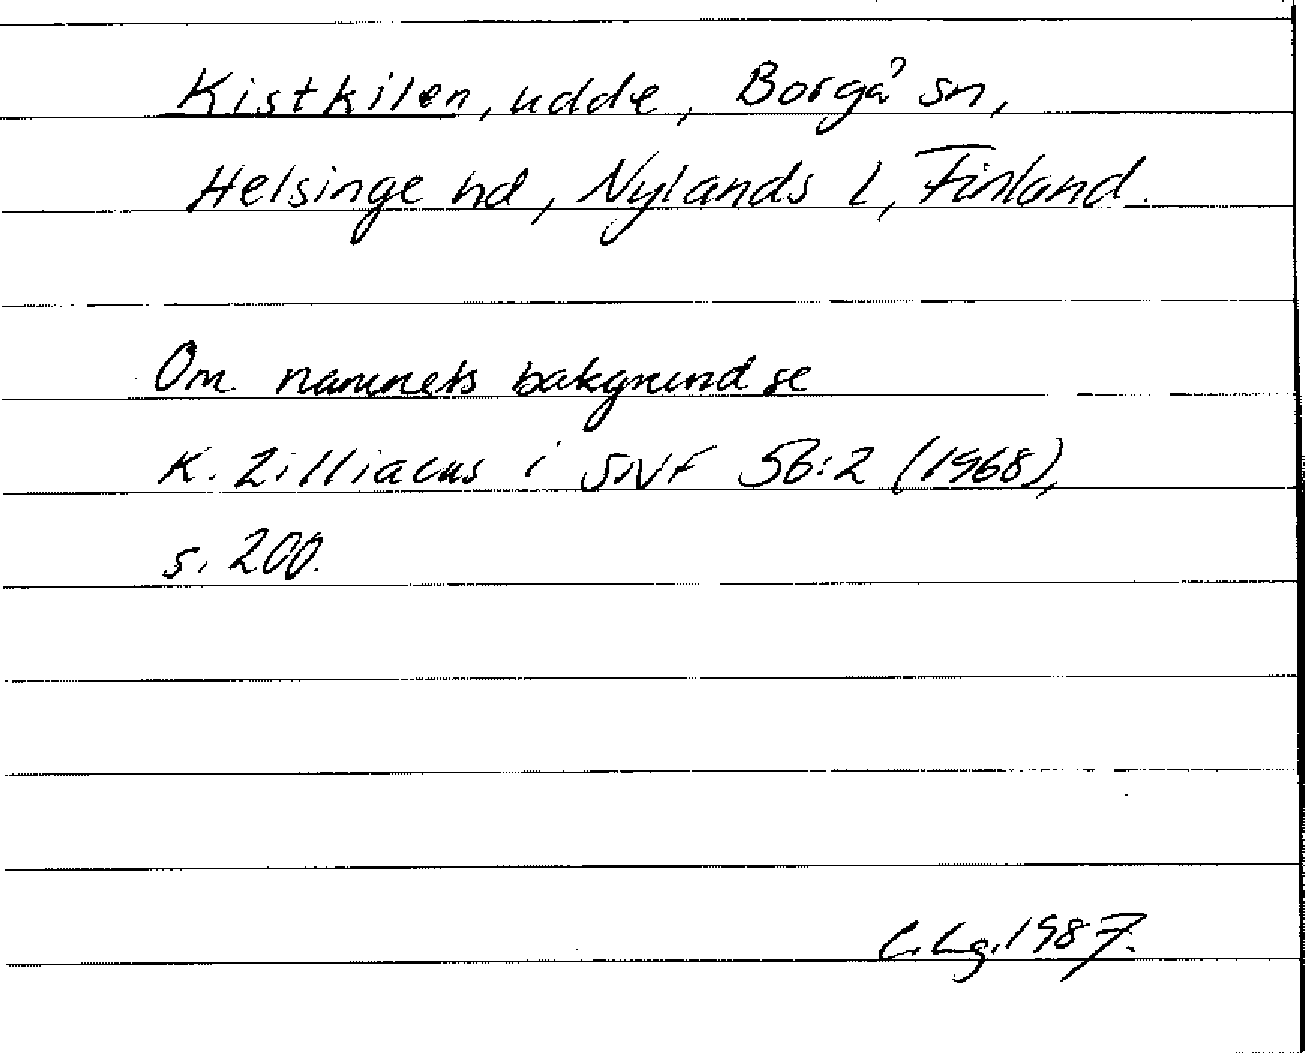 Kistkilen, udde, Borgå sn,
Helsinge hd, Nylands l, Finland.
Om namnets bakgrund se
K. Zilliacus i SNF 56:2 (1968),
s. 200.
C. Lg. 1987.